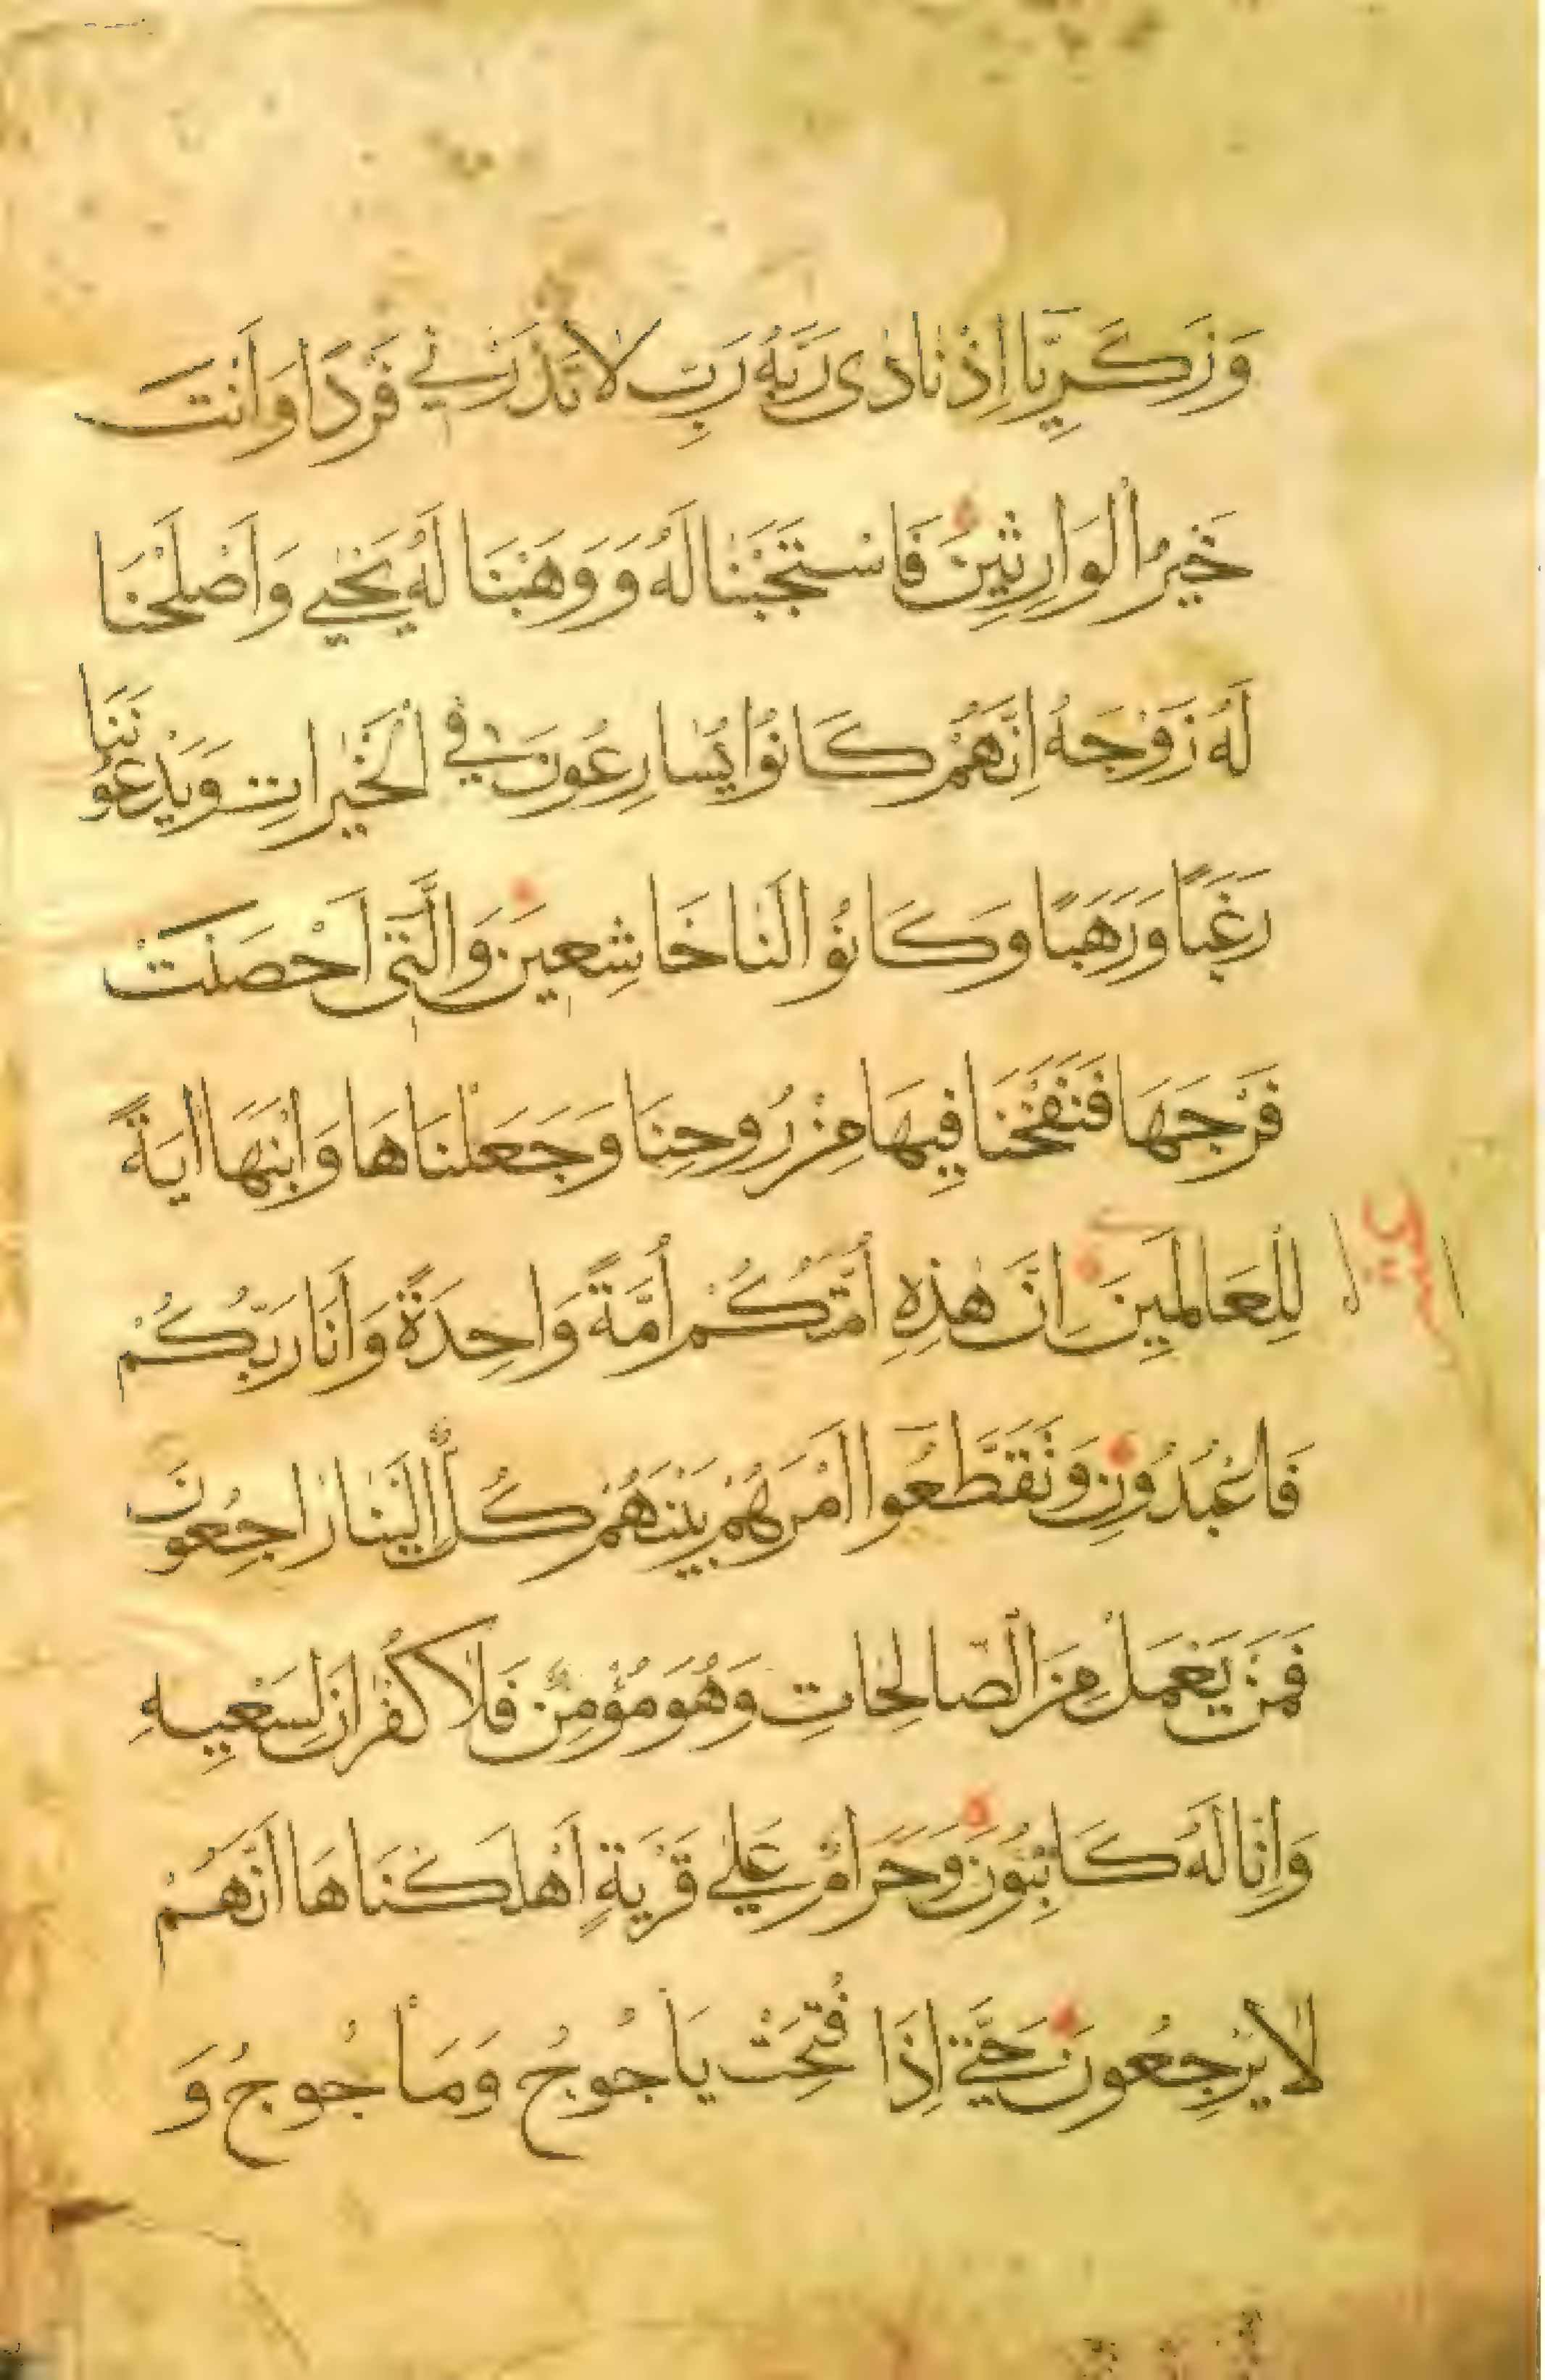 وَزَكَرِيَّا اِذْ نَادٰى رَبَّهُ رَبِّ لَا تَذَرْنٖي فَرْدًا وَاَنْتَ
خَيْرُ الْوَارِثِينَ فَاسْتَجَبْنَا لَهُ وَوَهَبْنَا لَهُ يَحْيٰي وَاَصْلَحْنَا
لَهُ زَوْجَهُ اِنَّهُمْ كَانُوا يُسَارِعُونَ فِي الْخَيْرَاتِ وَيَدْعُونَنَا
رَغَبًا وَرَهَبًا وَكَانُوا لَنَا خَاشِعٖينَ وَالَّتٖى اَحْصَنَتْ
فَرْجَهَا فَنَفَخْنَا فِيهَا مِنْ رُوحِنَا وَجَعَلْنَاهَا وَابْنَهَا اٰيَةً
لِلْعَالَمِينَ اِنَّ هٰذِهِ اُمَّتُكُمْ اُمَّةً وَاحِدَةً وَاَنَا رَبُّكُمْ
فَاعْبُدُونِ وَتَقَطَّعُوا اَمْرَهُمْ بَيْنَهُمْ كُلٌّ اِلَيْنَا رَاجِعُونَ
فَمَنْ يَعْمَلْ مِنَ الصَّالِحَاتِ وَهُوَ مُؤْمِنٌ فَلَا كُفْرَانَ لِسَعْيِهِ
وَاِنَّا لَهُ كَاتِبُونَ وَحَرَامٌ عَلٰي قَرْيَةٍ اَهْلَكْنَاهَا اَنَّهُمْ
لَا يَرْجِعُونَ حَتّٰي اِذَا فُتِحَتْ يَأْجُوجُ وَمَأْجُوجُ وَ